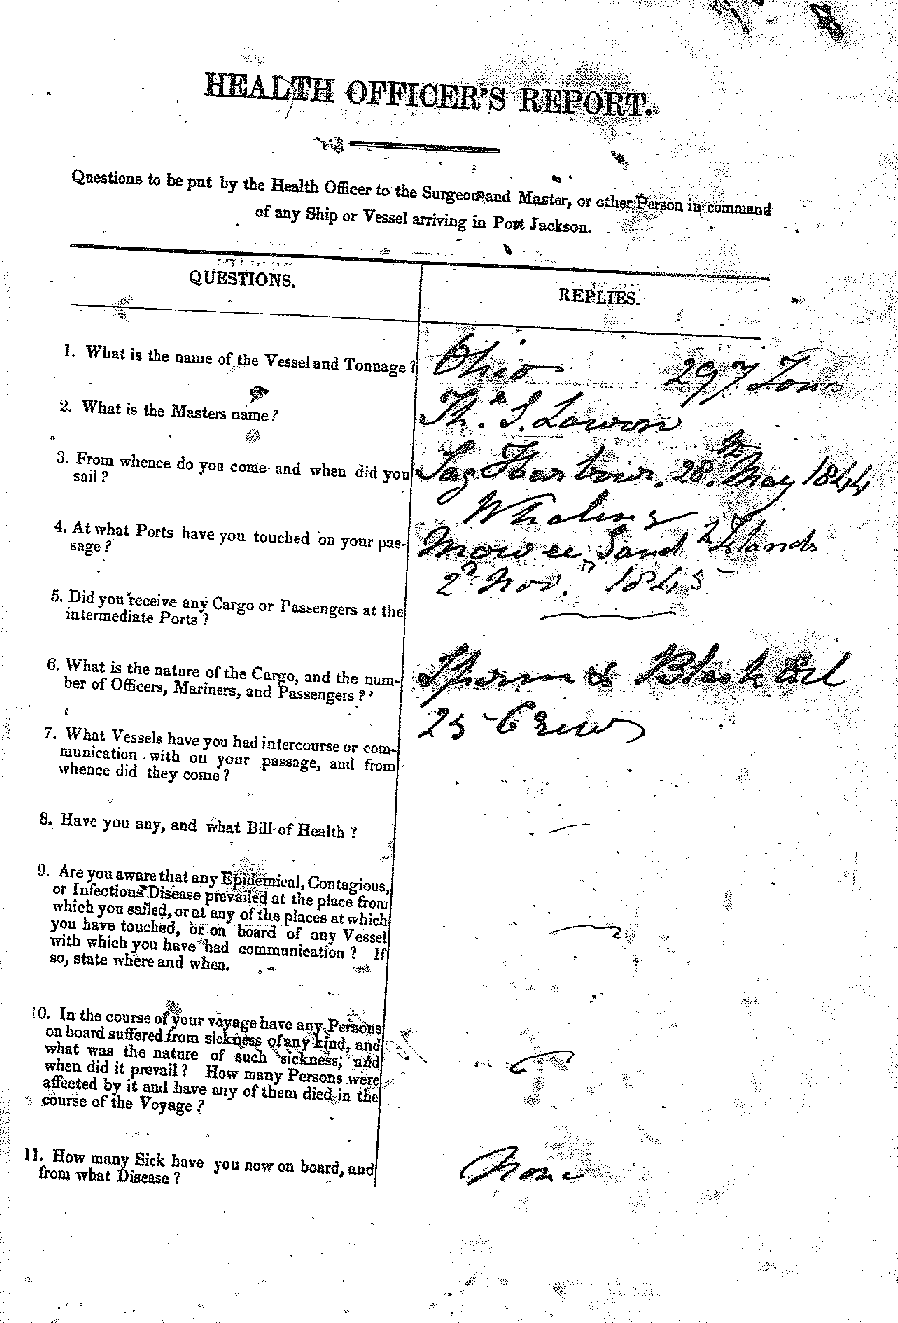 HEALTH OFFICER'S REPORT.
Questions to be put by the Health Officer to the Surgeon and Master, or other Person in command
of any Ship or Vessel arriving in Port Jackson.
QUESTIONS.
REPLIES.
1. What is the name of the Vessel and Tonnage?
Ohio 297 Tons
2. What is the Masters name?
Ths. S. Lowen
3. From whence do you come and when did you
sail?
Sag Harbour. 28th May 1844
Whaling
4. At what Ports have you touched on your pas-
sage?
Mowee, Sand Islands
2d Nov. 1845
5. Did you receive any Cargo or Passengers at the
intermediate Ports?
6. What is the nature of the Cargo, and the num-
ber of Officers, Mariners, and Passengers?
Sperm & Black Oil
25 Crew
7. What Vessels have you had intercourse or com-
munication with on your passage, and from
whence did they come?
8. Have you any, and what Bill of Health?
9. Are you aware that any Epidemical, Contagious,
or Infectious Disease prevailed at the place from
which you sailed, or at any of the places at which
you have touched, or on board of any Vessel
with which you have had communication? If
so, state where and when.
10. In the course of your voyage have any Persons
on board suffered from sickness of any kind, and
what was the nature of such sickness, and
when did it prevail? How many Persons were
affected by it and have any of them died in the
course of the Voyage?
11. How many Sick have you now on board, and
from what Disease?
None